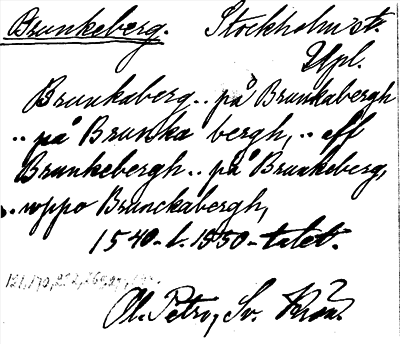 Brunkeberg. Stockholm st.
Upl.
Brunkaberg .. på Brunkabergh
.. på Brunka bergh, .. aff
Brunkebergh .. på Brunkeberg,
.. uppo Brunckabergh,
1540-t. 1550-talet.
Ol. Petri, Sv. Krön.